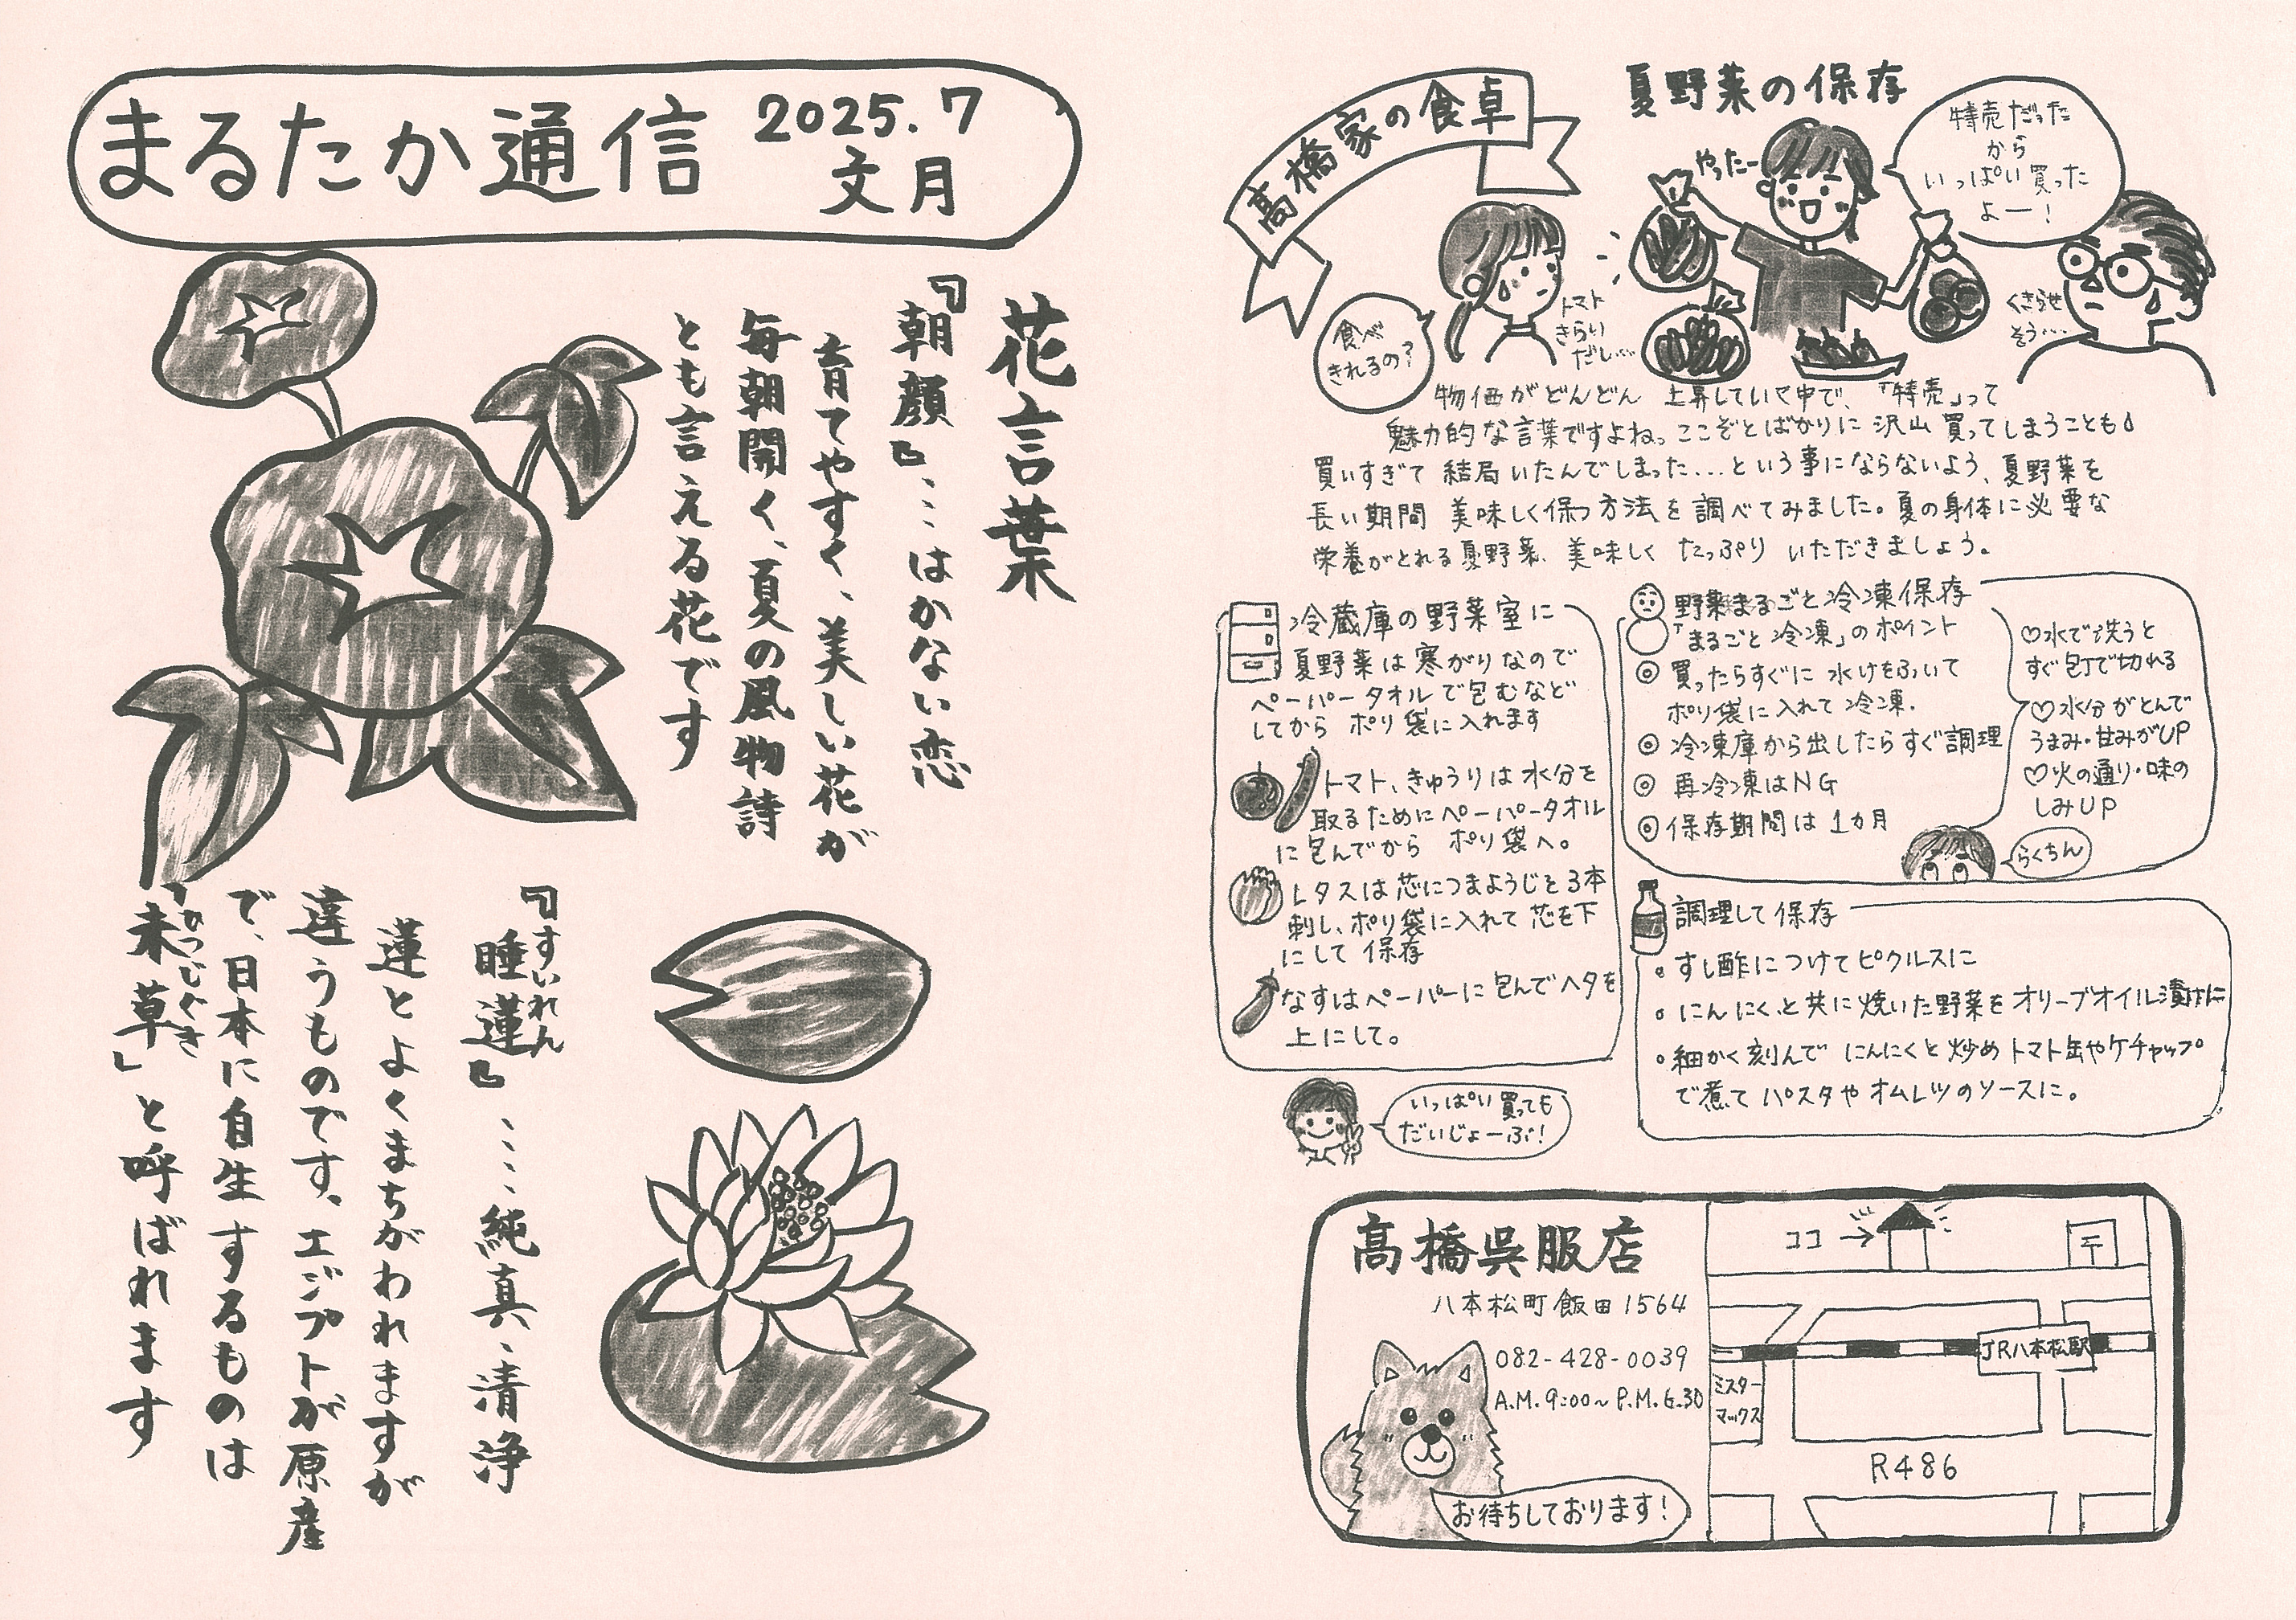 まるたか通信
2025.7
文月
花言葉
『朝顔』…はかない恋
育てやすく、美しい花が
毎朝開く、夏の風物詩
とも言える花です
『睡蓮』……純真・清浄
すいれん
蓮とよくまちがわれますが
違うものです。エジプトが原産
で、日本に自生するものは
「未草」と呼ばれます
ひつじぐさ
高橋家の食卓
夏野菜の保存
やったー
特売だった
から
いっぱい買った
よー!
食べ
きれるの?
トマト
きらい
だし…
くさらせ
そう…
物価がどんどん 上昇していく中で、「特売」って
魅力的な言葉ですよね。ここぞとばかりに 沢山 買ってしまうことも
買いすぎて 結局いたんでしまった…という事にならないよう、夏野菜を
長い期間 美味しく保つ方法を調べてみました。夏の身体に必要な
栄養がとれる夏野菜、美味しく たっぷり いただきましょう。
冷蔵庫の野菜室に
夏野菜は寒がりなので
ペーパータオルで包むなど
してから ポリ袋に入れます
トマト、きゅうりは水分を
取るためにペーパータオル
に包んでから ポリ袋へ。
レタスは芯につまようじを3本
刺し、ポリ袋に入れて芯を下
にして保存
なすはペーパーに包んでヘタを
上にして。
いっぱい買っても
だいじょーぶ!
野菜まるごと冷凍保存
「まるごと冷凍」のポイント
◎買ったらすぐに水けをふいて
ポリ袋に入れて冷凍.
◎冷凍庫から出したらすぐ調理
◎再冷凍はNG
◎保存期間は1カ月
♡水で洗うと
すぐ包丁で切れる
♡水分がとんで
うまみ・甘みがUP
♡火の通り・味の
しみUP
らくちん
調理して保存
。すし酢につけてピクルスに
。にんにくと共に焼いた野菜をオリーブオイル漬けに
。細かく刻んで にんにくと炒め トマト缶やケチャップ
で煮て パスタやオムレツのソースに。
高橋呉服店
八本松町飯田1564
082-428-0039
A.M.9:00~P.M.6.30
お待ちしております!
ココ→
〒
JR八本松駅
ミスター
マックス
R486